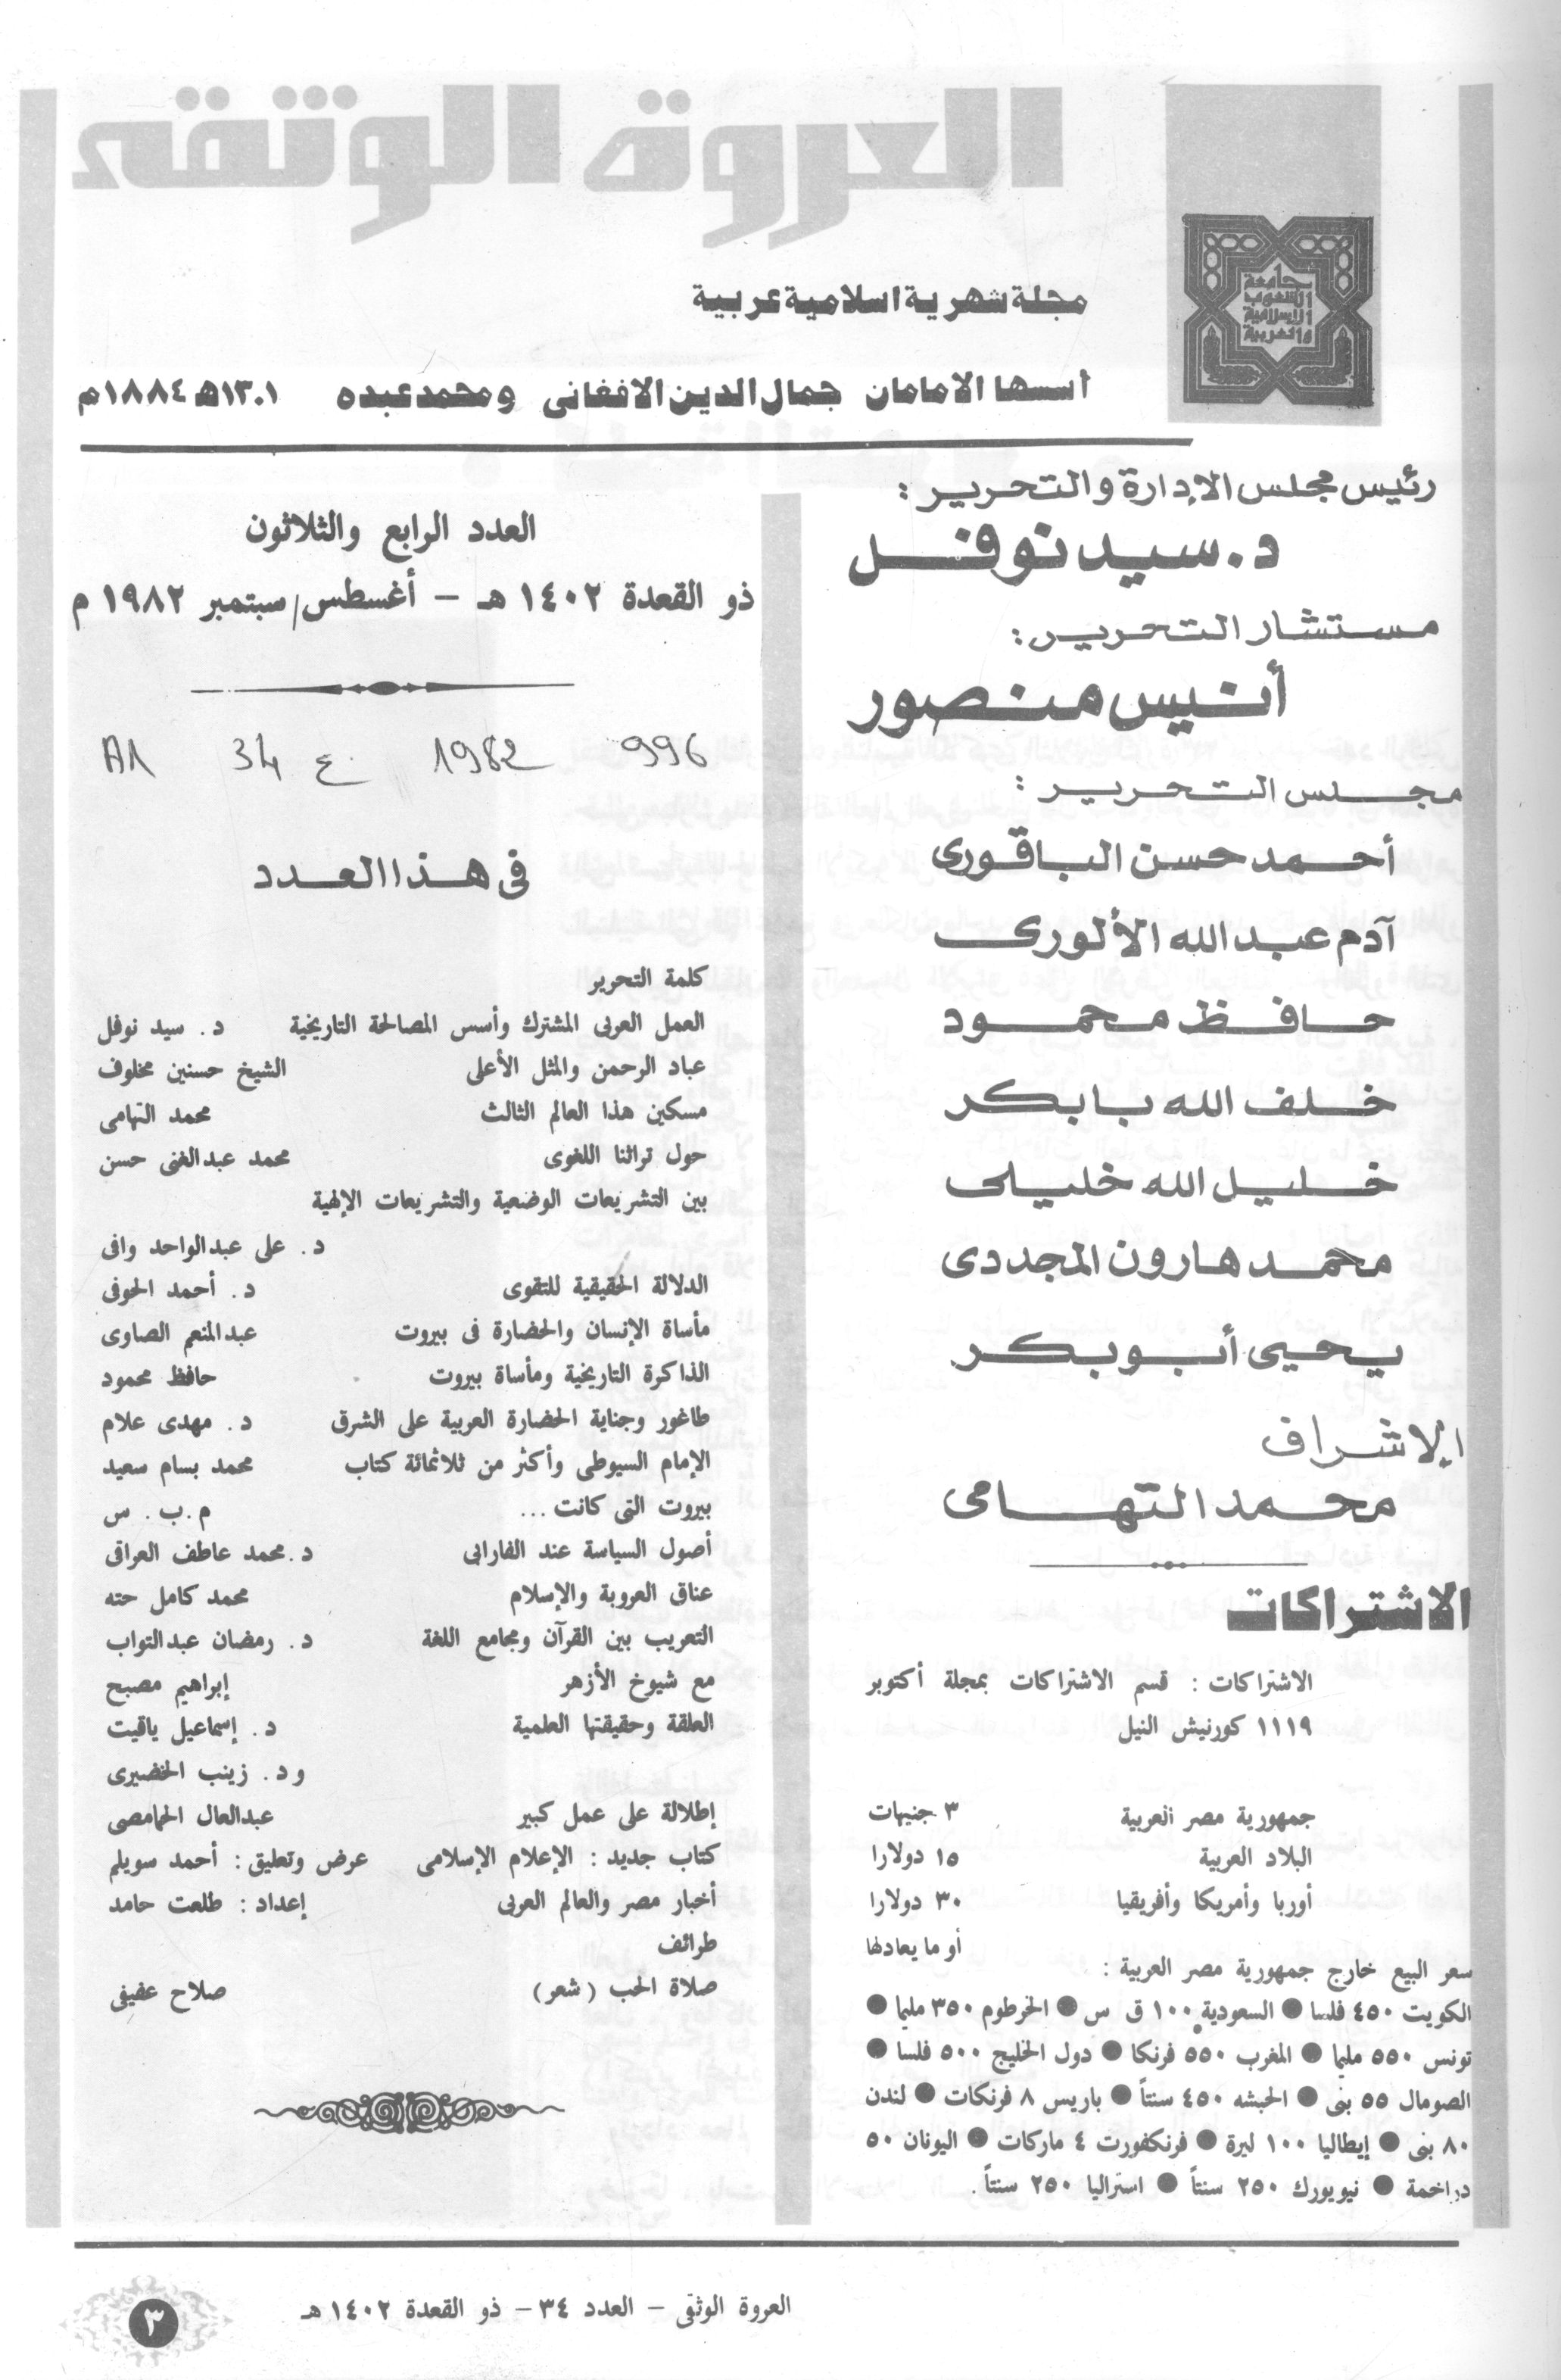 العروة الوثقى
جامعة
الشعوب
الإسلامية
والعربية
مجلة شهرية اسلامية عربية
أسسها الامامان جمال الدين الافغانى ومحمد عبده ١٣٠١هـ ١٨٨٤م
رئيس مجلس الإدارة والتحرير :
د. سيد نوفل
مستشار التحرير :
أنيس منصور
مجلس التحرير :
أحمد حسن الباقورى
آدم عبد الله الألورى
حافظ محمود
خلف الله بابكر
خليل الله خليلى
محمد هارون المجددى
يحيى أبو بكر
الإشراف
محمد التهامى
الاشتراكات
الاشتراكات : قسم الاشتراكات بمجلة أكتوبر
١١١٩ كورنيش النيل
جمهورية مصر العربية ٣ جنيهات
البلاد العربية ١٥ دولارا
أوربا وأمريكا وأفريقيا ٣٠ دولارا
أو ما يعادلها
سعر البيع خارج جمهورية مصر العربية :
الكويت ٤٥٠ فلسا ● السعودية ١٠٠ ق س ● الخرطوم ٣٥٠ مليما ●
تونس ٥٥٠ مليما ● المغرب ٥٥٠ فرنكا ● دول الخليج ٥٠٠ فلسا ●
الصومال ٥٥ بنى ● الحبشه ٤٥٠ سنتاً ● باريس ٨ فرنكات ● لندن
٨٠ بنى ● إيطاليا ١٠٠ ليرة ● فرنكفورت ٤ ماركات ● اليونان ٥٠
دراخمة ● نيويورك ٢٥٠ سنتاً ● استراليا ٢٥٠ سنتاً .
العدد الرابع والثلاثون
ذو القعدة ١٤٠٢ هـ - أغسطس/سبتمبر ١٩٨٢ م
A1 34 ع 1982 996
فى هذا العدد
كلمة التحرير
العمل العربى المشترك وأسس المصالحة التاريخية د. سيد نوفل
عباد الرحمن والمثل الأعلى الشيخ حسنين مخلوف
مسكين هذا العالم الثالث محمد التهامى
حول تراثنا اللغوى محمد عبدالغنى حسن
بين التشريعات الوضعية والتشريعات الإلهية
د. على عبدالواحد وافى
الدلالة الحقيقية للتقوى د. أحمد الحوفى
مأساة الإنسان والحضارة فى بيروت عبدالمنعم الصاوى
الذاكرة التاريخية ومأساة بيروت حافظ محمود
طاغور وجناية الحضارة العربية على الشرق د. مهدى علام
الإمام السيوطى وأكثر من ثلاثمائة كتاب محمد بسام سعيد
بيروت التى كانت ... م.ب. س
أصول السياسة عند الفارابى د.محمد عاطف العراقى
عناق العروبة والإسلام محمد كامل حته
التعريب بين القرآن ومجامع اللغة د. رمضان عبدالتواب
مع شيوخ الأزهر إبراهيم مصبح
العلقة وحقيقتها العلمية د. إسماعيل ياقيت
و د. زينب الخضيرى
إطلالة على عمل كبير عبدالعال الحمامصى
كتاب جديد : الإعلام الإسلامى عرض وتعليق : أحمد سويلم
أخبار مصر والعالم العربى إعداد : طلعت حامد
طرائف
صلاة الحب (شعر) صلاح عفيفى
العروة الوثقى - العدد ٣٤ - ذو القعدة ١٤٠٢ هـ
٣